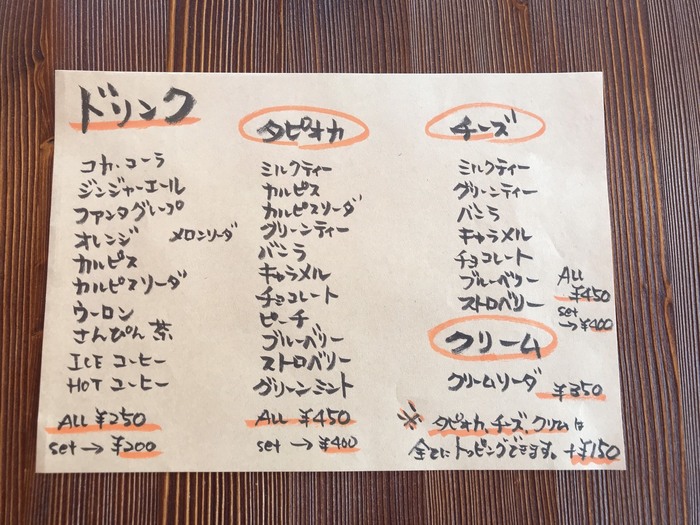 ドリンク
コカ・コーラ
ジンジャーエール
ファンタグレープ
オレンジ メロンソーダ
カルピス
カルピスソーダ
ウーロン
さんぴん茶
ICE コーヒー
HOT コーヒー
ALL ¥250
set → ¥200
タピオカ
ミルクティー
カルピス
カルピスソーダ
グリーンティー
バニラ
キャラメル
チョコレート
ピーチ
ブルーベリー
ストロベリー
グリーンミント
ALL ¥450
set → ¥400
チーズ
ミルクティー
グリーンティー
バニラ
キャラメル
チョコレート
ブルーベリー
ストロベリー
ALL
¥450
set
→ ¥400
クリーム
クリームソーダ ¥350
※ タピオカ、チーズ、クリームは
全てにトッピングできます。+¥150